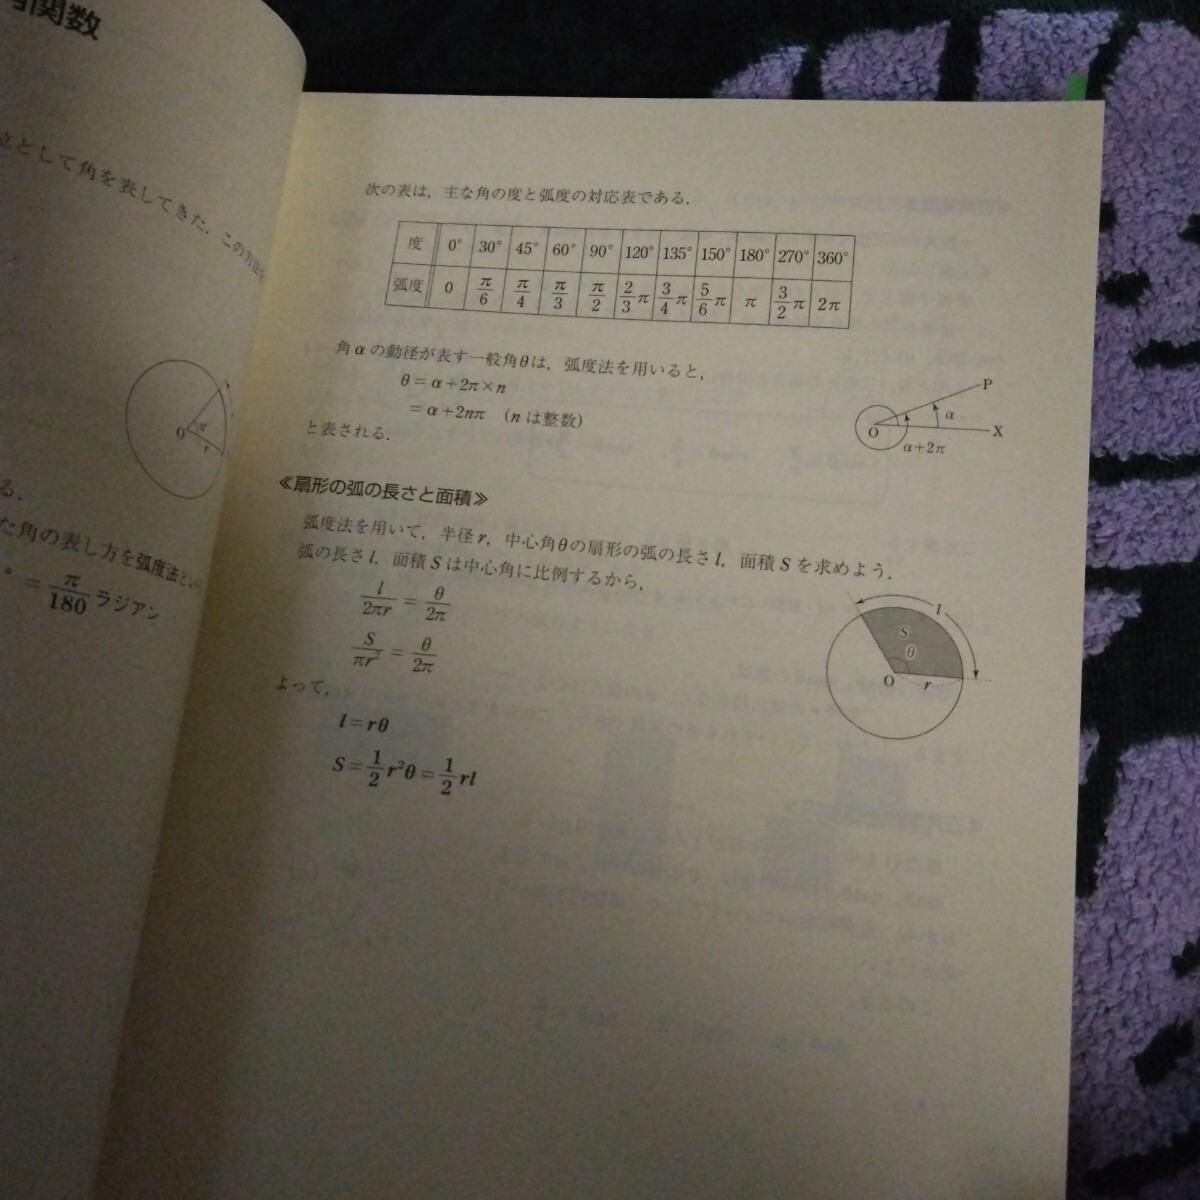 関数
として角を表してきた．この方法を
O
α
r
る．
た角の表し方を弧度法とい
° = π/180 ラジアン
次の表は，主な角の度と弧度の対応表である．
度 0° 30° 45° 60° 90° 120° 135° 150° 180° 270° 360°
弧度 0 π/6 π/4 π/3 π/2 2/3π 3/4π 5/6π π 3/2π 2π
角αの動径が表す一般角θは，弧度法を用いると，
θ=α+2π×n
=α+2nπ (nは整数)
と表される．
P
α
O
X
α+2π
≪扇形の弧の長さと面積≫
弧度法を用いて，半径r，中心角θの扇形の弧の長さl，面積Sを求めよう．
弧の長さl，面積Sは中心角に比例するから，
l/2πr = θ/2π
S/πr² = θ/2π
よって，
l=rθ
S=1/2r²θ=1/2rl
l
S
θ
O
r